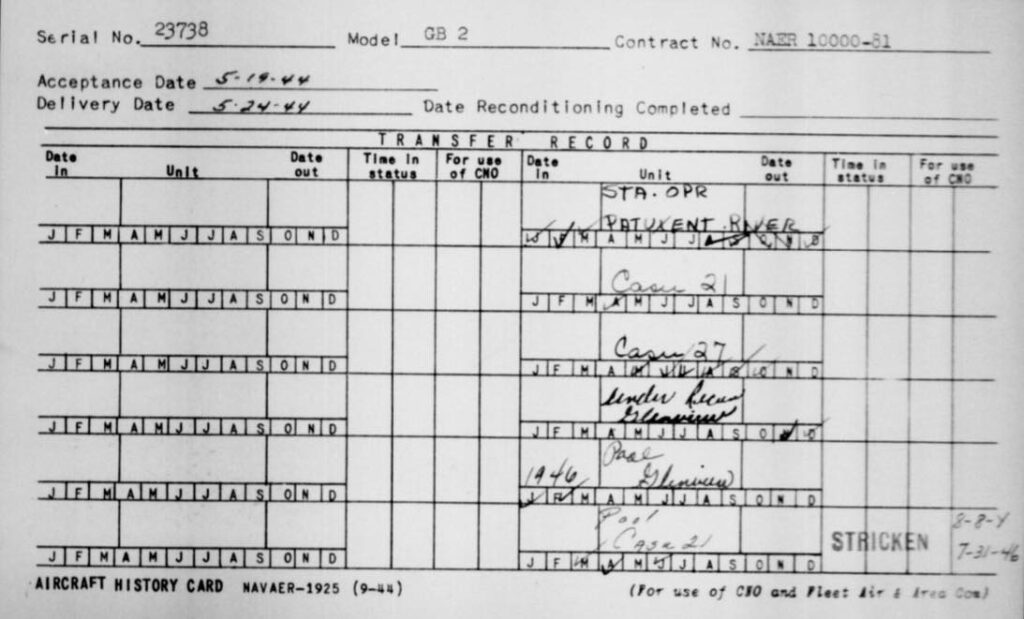 Serial No. 23738 Model GB 2 Contract No. NAER 10000-81
Acceptance Date 5-19-44
Delivery Date 5-24-44 Date Reconditioning Completed
TRANSFER RECORD
Date In Unit Date out Time In status For use of CNO Date In Unit Date out Time In status For use of CNO
STA. OPR
PATUXENT RIVER
J F M A M J J A S O N D J F M A M J J A S O N D
Casu 21
J F M A M J J A S O N D J F M A M J J A S O N D
Casu 27
J F M A M J J A S O N D J F M A M J J A S O N D
Under Recon
Glenview
J F M A M J J A S O N D J F M A M J J A S O N D
Pool
1946 Glenview
J F M A M J J A S O N D J F M A M J J A S O N D
Pool 8-8-4
Casu 21 STRICKEN 7-31-46
J F M A M J J A S O N D J F M A M J J A S O N D
AIRCRAFT HISTORY CARD NAVAER-1925 (9-44) (For use of CNO and Fleet Air & Area Com)